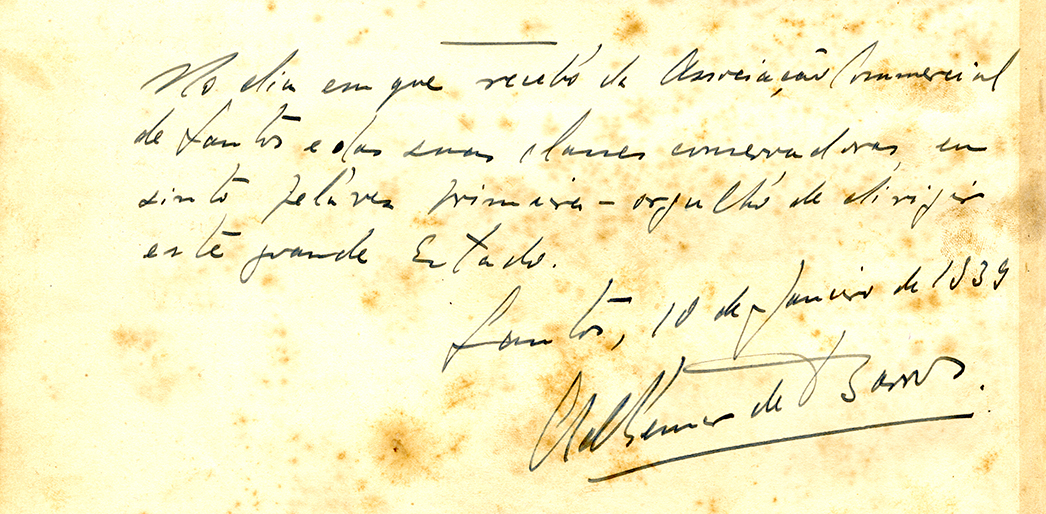 No dia em que recebo da Associação Commercial
de Santos e das suas classes conservadoras, eu
sinto pela vez primeira – orgulho de dirigir
este grande Estado.
Santos, 10 de Janeiro de 1939
Adhemar de Barros.